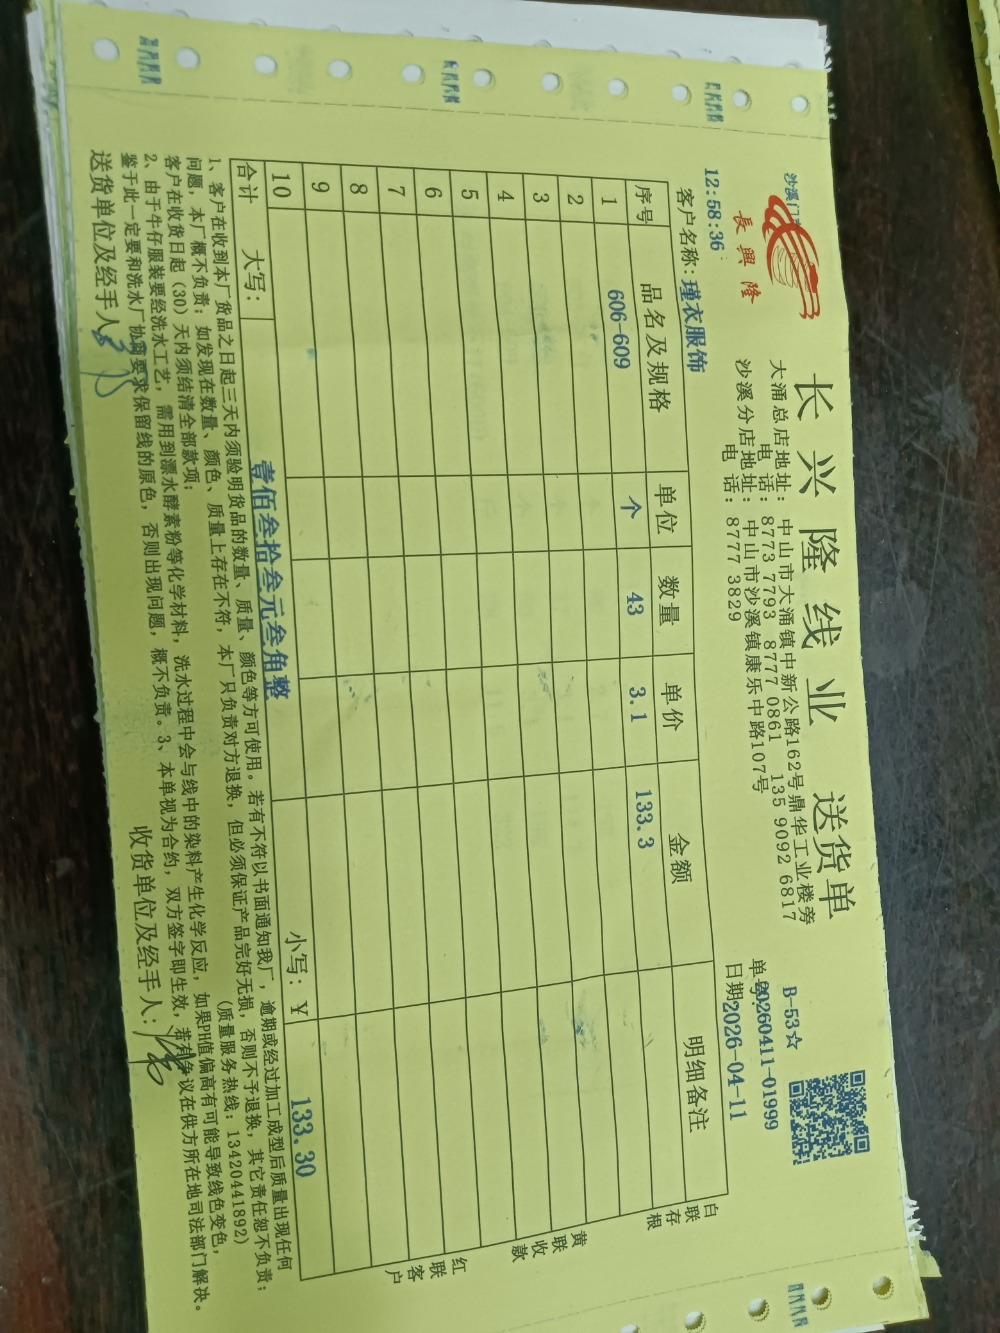 沙溪门
長興隆
长兴隆线业 送货单
大涌总店地址：中山市大涌镇中新公路162号鼎华工业楼旁
电 话：8773 7793 8777 0861 135 9092 6817
沙溪分店地址：中山市沙溪镇康乐中路107号
电 话：8777 3829
B-53☆
单号:20260411-01999
日期2026-04-11
12:58:36
客户名称：瑾衣服饰
序号 品名及规格 单位 数量 单价 金额 明细备注
1 606-609 个 43 3.1 133.3
2
3
4
5
6
7
8
9
10
合计 大写： 壹佰叁拾叁元叁角整 小写：￥ 133.30
白联存根
黄联收款
红联客户
1、客户在收到本厂货品之日起三天内须验明货品的数量、质量、颜色等方可使用。若有不符以书面通知我厂，逾期或经过加工成型后质量出现任何
问题，本厂概不负责；如发现在数量、颜色、质量上存在不符，本厂只负责对方退换，但必须保证产品完好无损，否则不予退换，其它责任恕不负责；
客户在收货日起（30）天内须结清全部款项； （质量服务热线：13420441892）
2、由于牛仔服装要经洗水工艺，需用到漂水酵素粉等化学材料，洗水过程中会与线中的染料产生化学反应，如果PH值偏高有可能导致线色变色，
鉴于此一定要和洗水厂协商要求保留线的原色，否则出现问题，概不负责。3、本单视为合约，双方签字即生效，若有争议在供方所在地司法部门解决。
送货单位及经手人：
收货单位及经手人：